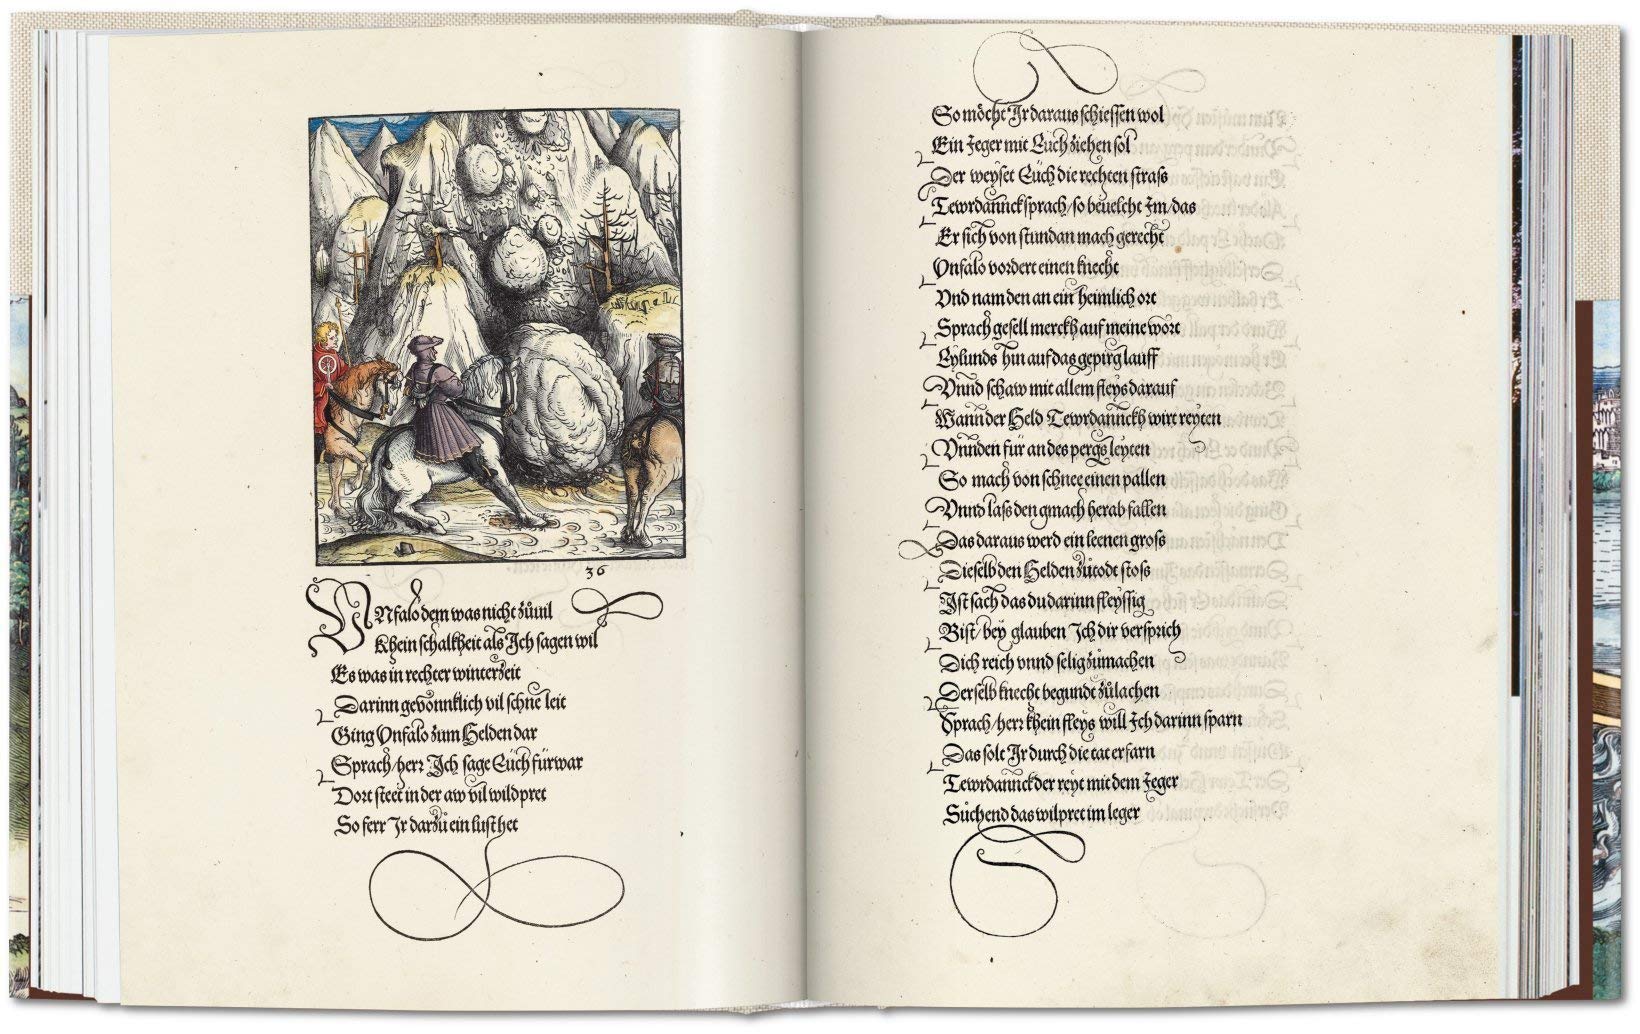 36
UNfalo dem was nicht zůuil
Khein schalkheit als Ich sagen wil
Es was in rechter winterzeit
Darinn gewonnklich vil schne leit
Ging Vnfalo zum Helden dar
Sprach/herr Ich sage Euch fürwar
Dort steet in der aw vil wildpret
So ferr Ir darzů ein lust het
So möcht Ir daraus schiessen wol
Ein Jeger mit Euch ziehen sol
Der weyset Euch die rechten strass
Tewrdannck sprach/so beuelcht Im/das
Er sich von stundan mach gerecht
Vnfalo vordert einen knecht
Vnd nam den an ein heimlich ort
Sprach gesell merckh auf meine wort
Eylunds hin auf das gepirg lauff
Vnnd schaw mit allem fleys darauf
Wann der Held Tewrdannckh wirt reyten
Vnnden für an des pergs leyten
So mach von schnee einen pallen
Vnnd lass den gmach herab fallen
Das daraus werd ein leenen gross
Dieselb den Helden zůtodt stoss
Ist sach das du darinn fleyssig
Bist/bey glauben Ich dir versprich
Dich reich vnnd selig zůmachen
Derselb knecht begundt zůlachen
Sprach/herr khein fleys will Ich darinn sparn
Das solt Ir durch die tat erfarn
Tewrdannck der reyt mit dem Jeger
Sůchend das wilpret im leger